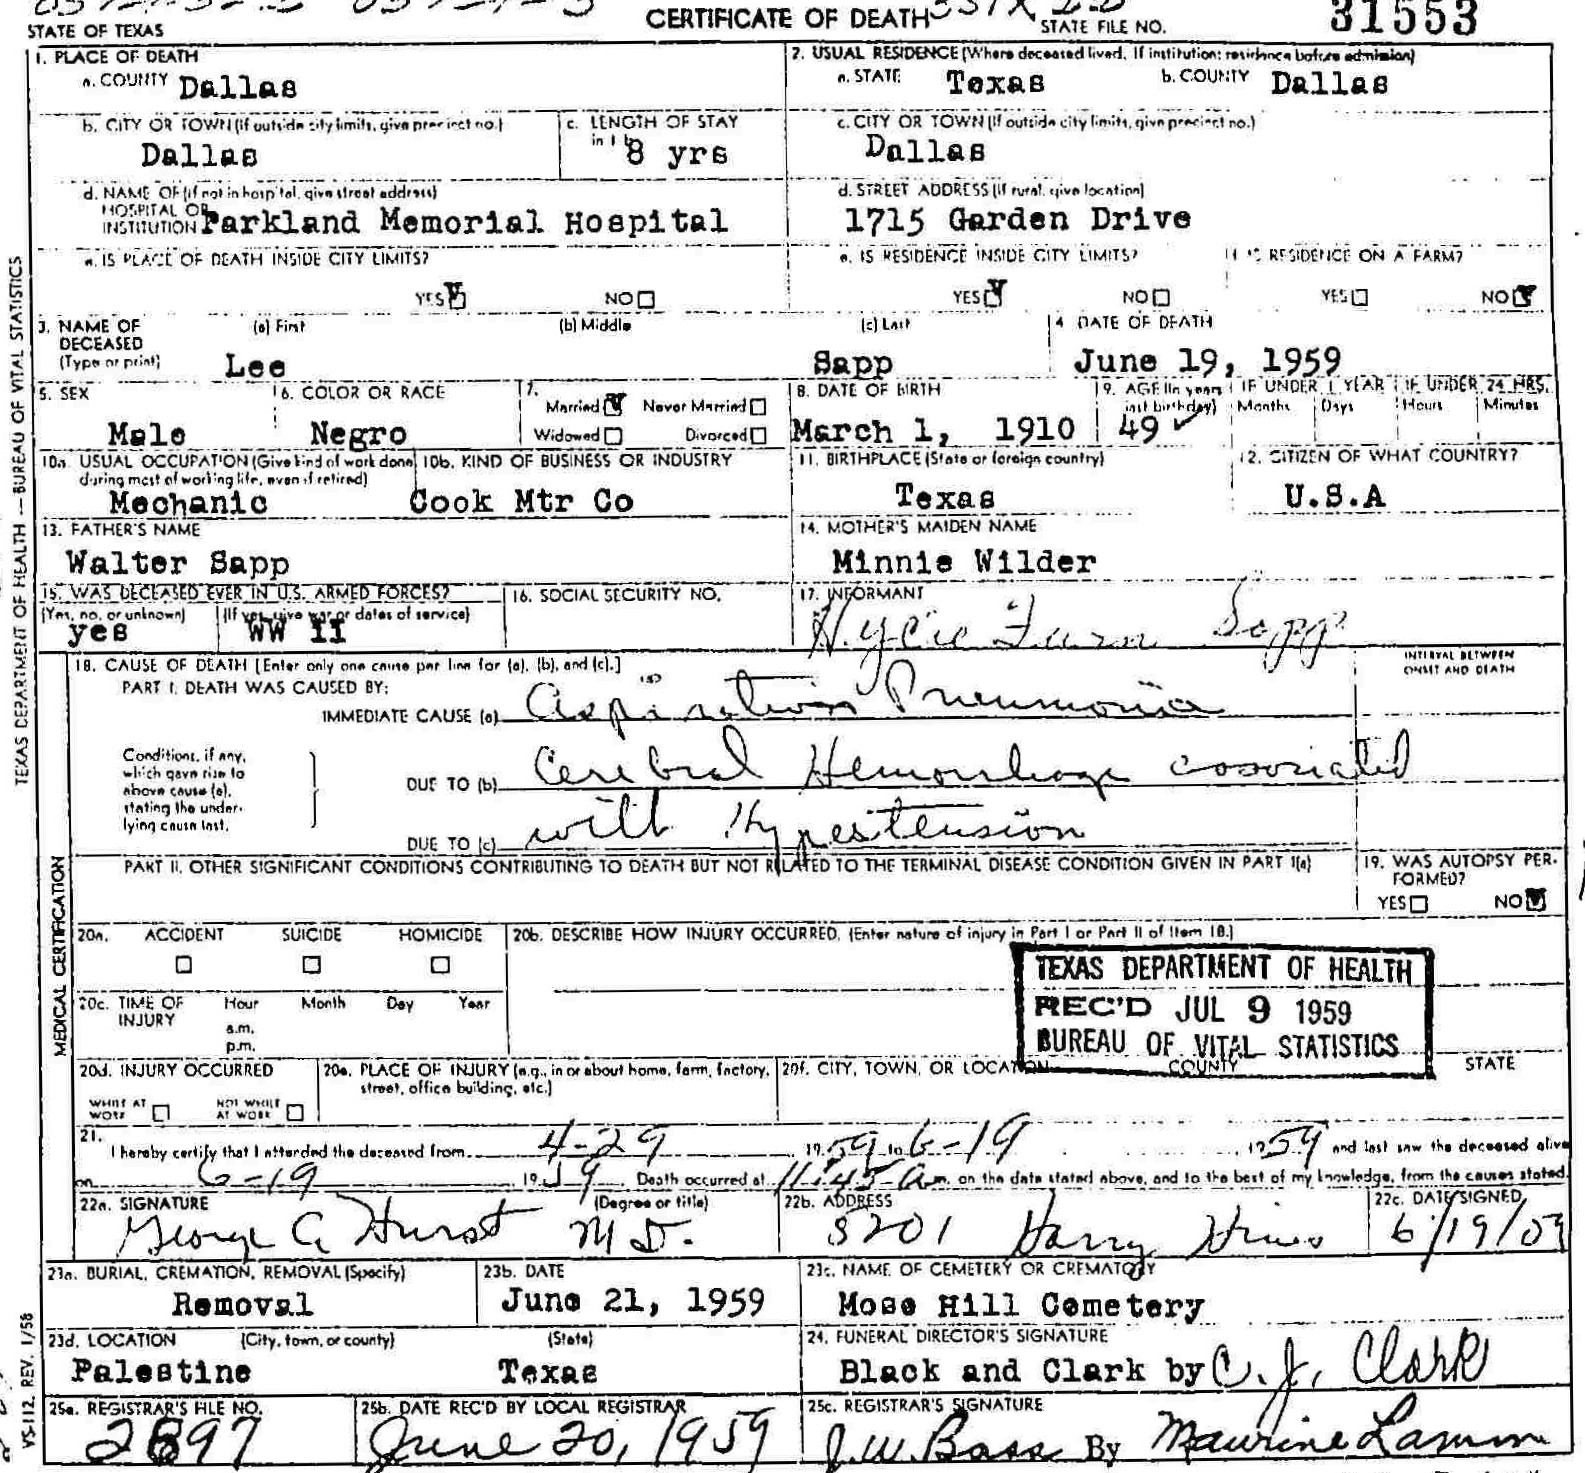 CERTIFICATE OF DEATH
STATE OF TEXAS
STATE FILE NO. 31553
1. PLACE OF DEATH
a. COUNTY Dallas
2. USUAL RESIDENCE (Where deceased lived. If institution: residence before admission)
a. STATE Texas b. COUNTY Dallas
b. CITY OR TOWN (If outside city limits, give precinct no.)
Dallas
c. LENGTH OF STAY
in 1 b 8 yrs
c. CITY OR TOWN (If outside city limits, give precinct no.)
Dallas
d. NAME OF (If not in hospital, give street address)
HOSPITAL OR
INSTITUTION Parkland Memorial Hospital
d. STREET ADDRESS (If rural, give location)
1715 Garden Drive
e. IS PLACE OF DEATH INSIDE CITY LIMITS?
YES NO
e. IS RESIDENCE INSIDE CITY LIMITS?
YES NO
f. IS RESIDENCE ON A FARM?
YES NO
3. NAME OF DECEASED (Type or print)
(a) First (b) Middle (c) Last
Lee Sapp
4. DATE OF DEATH
June 19, 1959
5. SEX
Male
6. COLOR OR RACE
Negro
7.
Married Never Married
Widowed Divorced
8. DATE OF BIRTH
March 1, 1910
9. AGE (In years last birthday)
49
IF UNDER 1 YEAR
Months Days
IF UNDER 24 HRS.
Hours Minutes
10a. USUAL OCCUPATION (Give kind of work done during most of working life, even if retired)
Mechanic
10b. KIND OF BUSINESS OR INDUSTRY
Cook Mtr Co
11. BIRTHPLACE (State or foreign country)
Texas
12. CITIZEN OF WHAT COUNTRY?
U.S.A
13. FATHER'S NAME
Walter Sapp
14. MOTHER'S MAIDEN NAME
Minnie Wilder
15. WAS DECEASED EVER IN U.S. ARMED FORCES?
(Yes, no, or unknown) (If yes, give war or dates of service)
yes WW II
16. SOCIAL SECURITY NO.
17. INFORMANT
Sapp
18. CAUSE OF DEATH [Enter only one cause per line for (a), (b), and (c).]
INTERVAL BETWEEN
ONSET AND DEATH
PART I. DEATH WAS CAUSED BY:
IMMEDIATE CAUSE (a) Aspiration Pneumonia
Conditions, if any, which gave rise to above cause (a), stating the underlying cause last.
DUE TO (b) Cerebral Hemorrhage associated
DUE TO (c) with Hypertension
PART II. OTHER SIGNIFICANT CONDITIONS CONTRIBUTING TO DEATH BUT NOT RELATED TO THE TERMINAL DISEASE CONDITION GIVEN IN PART I(a)
19. WAS AUTOPSY PERFORMED?
YES NO
20a. ACCIDENT SUICIDE HOMICIDE
20b. DESCRIBE HOW INJURY OCCURRED. (Enter nature of injury in Part I or Part II of Item 18.)
20c. TIME OF INJURY
Hour Month Day Year
a.m.
p.m.
TEXAS DEPARTMENT OF HEALTH
REC'D JUL 9 1959
BUREAU OF VITAL STATISTICS
20d. INJURY OCCURRED
WHILE AT WORK NOT WHILE AT WORK
20e. PLACE OF INJURY (e.g., in or about home, farm, factory, street, office building, etc.)
20f. CITY, TOWN, OR LOCATION COUNTY STATE
21.
I hereby certify that I attended the deceased from 4-29 1959 to 6-19 1959 and last saw the deceased alive
on 6-19 1959. Death occurred at 11:45 a m. on the date stated above, and to the best of my knowledge, from the causes stated.
22a. SIGNATURE (Degree or title)
George G Hurst M D.
22b. ADDRESS
5201 Harry Hines
22c. DATE SIGNED
6/19/59
23a. BURIAL, CREMATION, REMOVAL (Specify)
Removal
23b. DATE
June 21, 1959
23c. NAME OF CEMETERY OR CREMATORY
Mose Hill Cemetery
23d. LOCATION (City, town, or county) (State)
Palestine Texas
24. FUNERAL DIRECTOR'S SIGNATURE
Black and Clark by C. J. Clark
25a. REGISTRAR'S FILE NO.
2897
25b. DATE REC'D BY LOCAL REGISTRAR
June 20, 1959
25c. REGISTRAR'S SIGNATURE
J.W. Bass By Maurine Lamm
TEXAS DEPARTMENT OF HEALTH — BUREAU OF VITAL STATISTICS
MEDICAL CERTIFICATION
VS-112 REV. 1/58